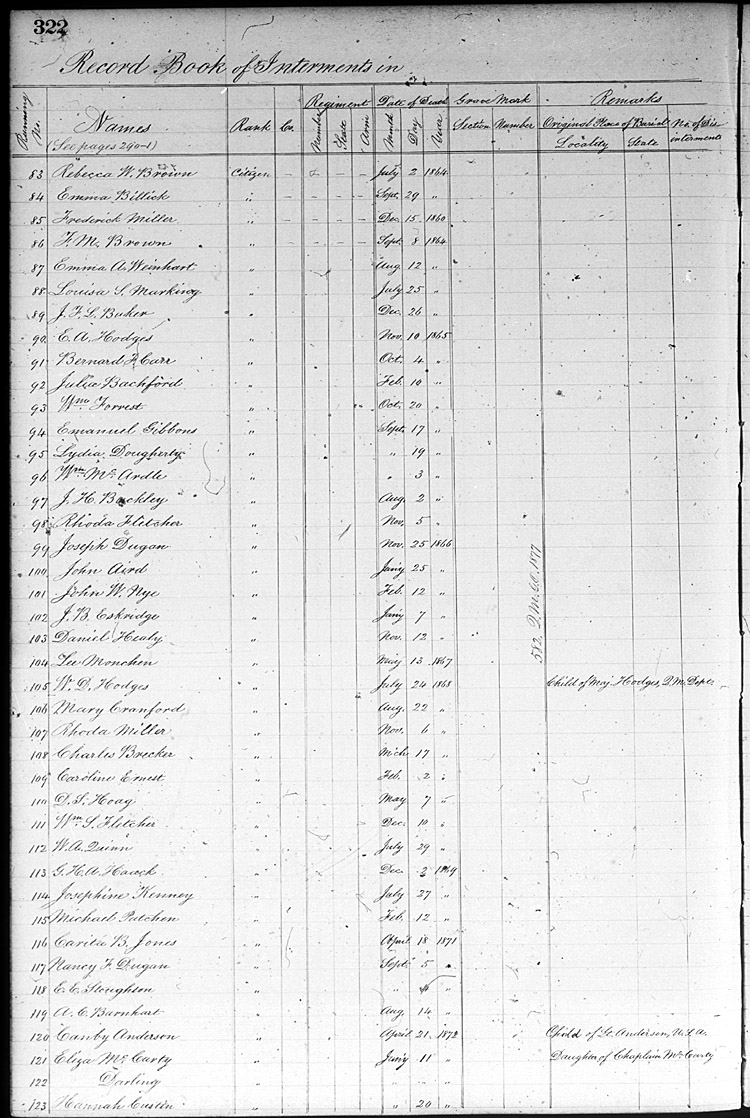 322
Record Book of Interments in
Regiment Date of Death Grave Mark Remarks
Running No. Names Rank Co. Number State Arm Month Day Year Section Number Original Place of Burial No. of Dis-interments
(See pages 290-1) Locality State
83 Rebecca W. Brown Citizen – – – – July 2 1864
84 Emma Billick " – – – – Sept. 29 "
85 Frederick Miller " – – – – Dec. 15 1860
86 F. M. Brown " – – – – Sept. 8 1864
87 Emma A. Weinhart " Aug. 12 "
88 Louisa S. Marking " July 25 "
89 J. F. L. Baker " Dec. 26 "
90 E. A. Hodges " Nov. 10 1865
91 Bernard F. Carr " Oct. 4 "
92 Julia Bachford " Feb. 10 "
93 Wm. Forrest " Oct. 20 "
94 Emanuel Gibbons " Sept. 17 "
95 Lydia Dougherty " " 19 "
96 Wm. McArdle " " 3 "
97 J. H. Buckley " Aug. 2 "
98 Rhoda Fletcher " Nov. 5 "
99 Joseph Dugan " Nov. 25 1866
100 John Aird " Jany 25 "
101 John W. Nye " Feb. 12 "
102 J. B. Eskridge " Jany 7 "
103 Daniel Healy " Nov. 12 "
104 Lee Monchen " May 13 1867
105 W. D. Hodges " July 24 1868 Child of Maj. Hodges, Q.M. Dept.
106 Mary Cranford " Aug. 22 "
107 Rhoda Miller " Nov. 6 "
108 Charles Brecker " Mch. 17 "
109 Caroline Ernest " Feb. 2 "
110 D. S. Hoag " May 7 "
111 Wm. S. Fletcher " Dec. 10 "
112 W. A. Quinn " July 29 "
113 G. H. A. " Dec. 2 1869
114 Josephine Kenney " July 27 "
115 Michael " Feb. 12 "
116 Carita B. Jones " April 18 1871
117 Nancy F. Dugan " Sept. 5 "
118 E. E. Stoughton " " "
119 A. C. Barnhart " Aug. 14 "
120 Canby Anderson " April 21 1872 Child of Lt. Anderson, U.S.A.
121 Eliza McCarty " Jany 11 " Daughter of Chaplain McCarty
122 Darling " " "
123 Hannah Custin " " 20 "
582. Q.M.G.O. 1877